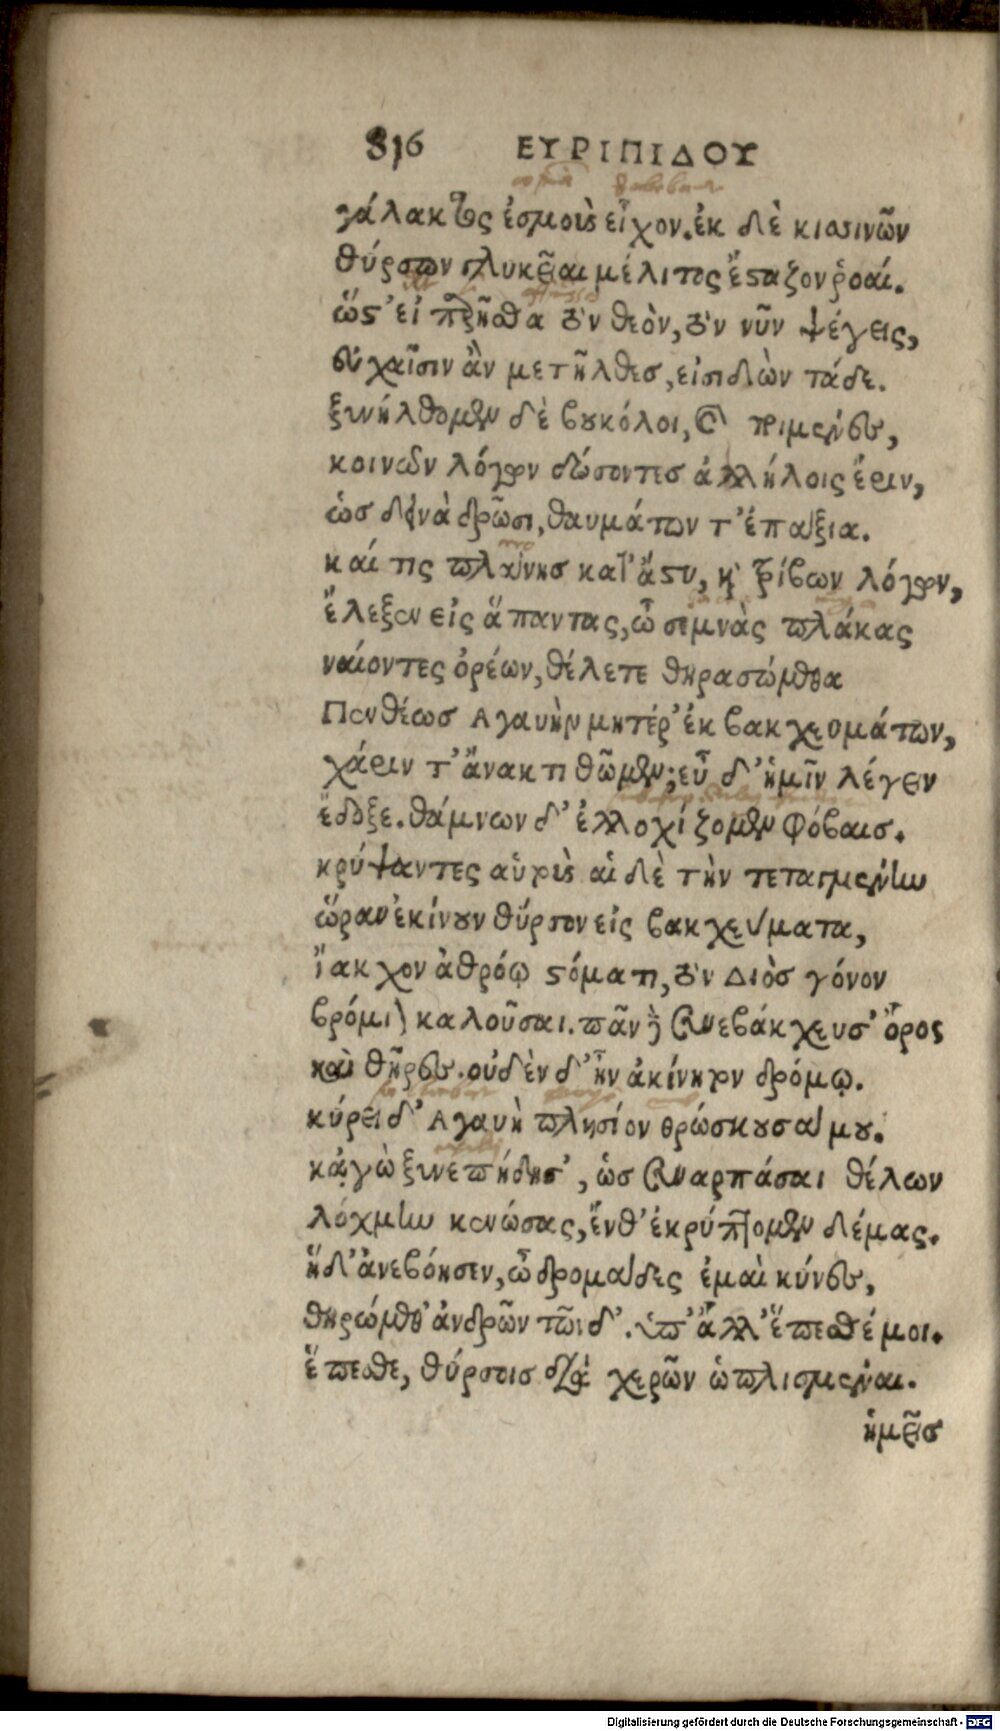 816 ΕΥΡΙΠΙΔΟΥ
γάλακτος ἐσμοὺς εἶχον. ἐκ δὲ κισσίνων
θύρσων γλυκεῖαι μέλιτος ἔσταζον ῥοαί.
ὥστ' εἰ παρῆσθα τὸν θεὸν, τὸν νῦν ψέγεις,
εὐχαῖσιν ἂν μετῆλθες, εἰσιδὼν τάδε.
ξυνήλθομεν δὲ βουκόλοι, καὶ ποιμένες,
κοινῶν λόγων δώσοντες ἀλλήλοις ἔριν,
ὡς δεινὰ δρῶσι, θαυμάτων τ' ἐπαξια.
καί τις πλάνης κατ' ἄστυ, καὶ τρίβων λόγων,
ἔλεξεν εἰς ἅπαντας, ὦ σεμνὰς πλάκας
ναίοντες ὀρέων, θέλετε θηρασώμεθα
Πενθέως Αγαυὴν μητέρ' ἐκ βακχευμάτων,
χάριν τ' ἄνακτι θῶμεν; εὖ δ' ἡμῖν λέγειν
ἔδοξε. θάμνων δ' ἐλλοχίζομεν φόβαις.
κρύψαντες αὑτοὺς αἱ δὲ τὴν τεταγμένην
ὥραν ἐκίνουν θύρσον εἰς βακχεύματα,
ἴακχον ἀθρόῳ στόματι, τὸν Διὸς γόνον
βρόμιον καλοῦσαι. πᾶν δὲ συνεβάκχευσ' ὄρος
καὶ θῆρες. οὐδὲν δ' ἦν ἀκίνητον δρόμῳ.
κύρει δ' Αγαυὴ πλησίον θρώσκουσα μου.
κᾀγὼ ξυνεπήδησ', ὡς συναρπάσαι θέλων
λόχμην κενώσας, ἔνθ' ἐκρύπτομεν δέμας.
ἥδ' ἀνεβόησεν, ὦ δρομαδες ἐμαὶ κύνες,
θηρώμεθ' ἀνδρῶν τῶνδ'. ὑπ' ἄλλ' ἕπεσθέ μοι.
ἕπεσθε, θύρσοις διὰ χερῶν ὡπλισμέναι.
ἡμεῖς
Digitalisierung gefördert durch die Deutsche Forschungsgemeinschaft - DFG